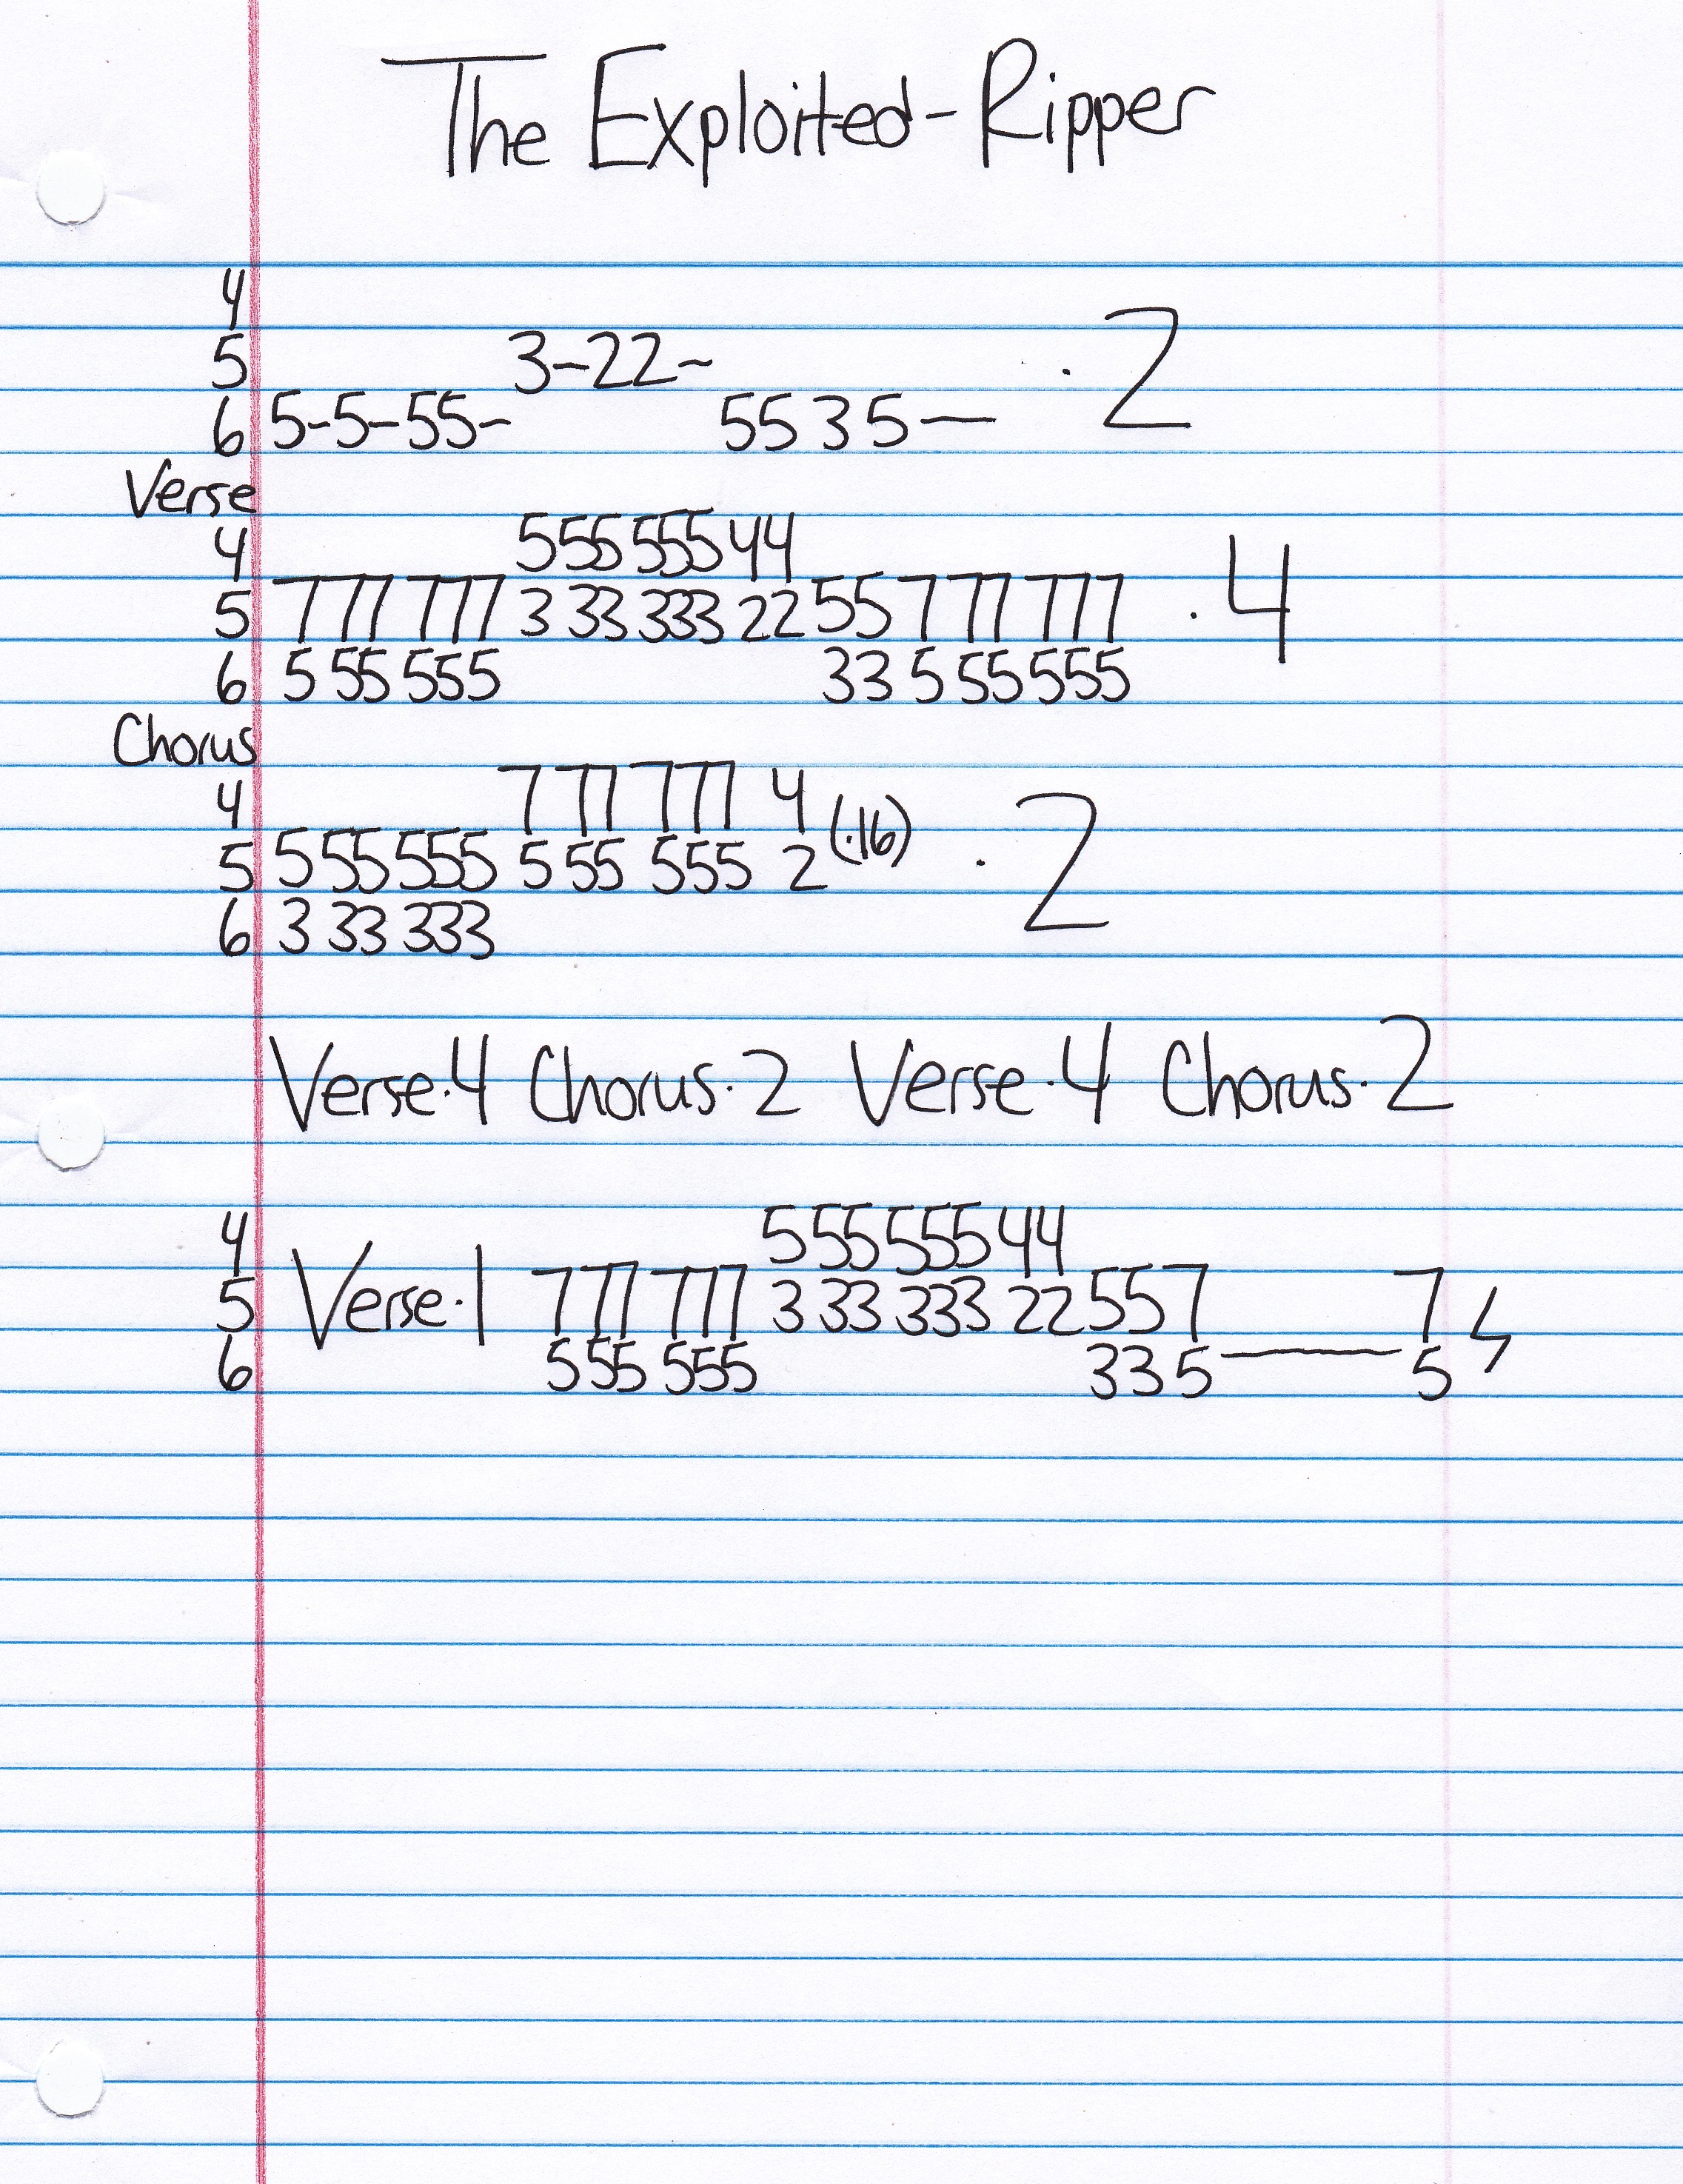 The Exploited-Ripper
4
5 3-22- · 2
6 5-5-55- 5535—
Verse
4 555 555 44
5 777 777 3 33 333 22 55 7 77 777 · 4
6 5 55 555 33 5 55 555
Chorus
4 7 77 777 4
5 5 55 555 5 55 555 2 (·16) · 2
6 3 33 333
Verse·4 Chorus·2 Verse·4 Chorus·2
4 5 55 555 44
5 Verse·1 777 777 3 33 333 22 55 7 7
6 555 555 33 5 — 5